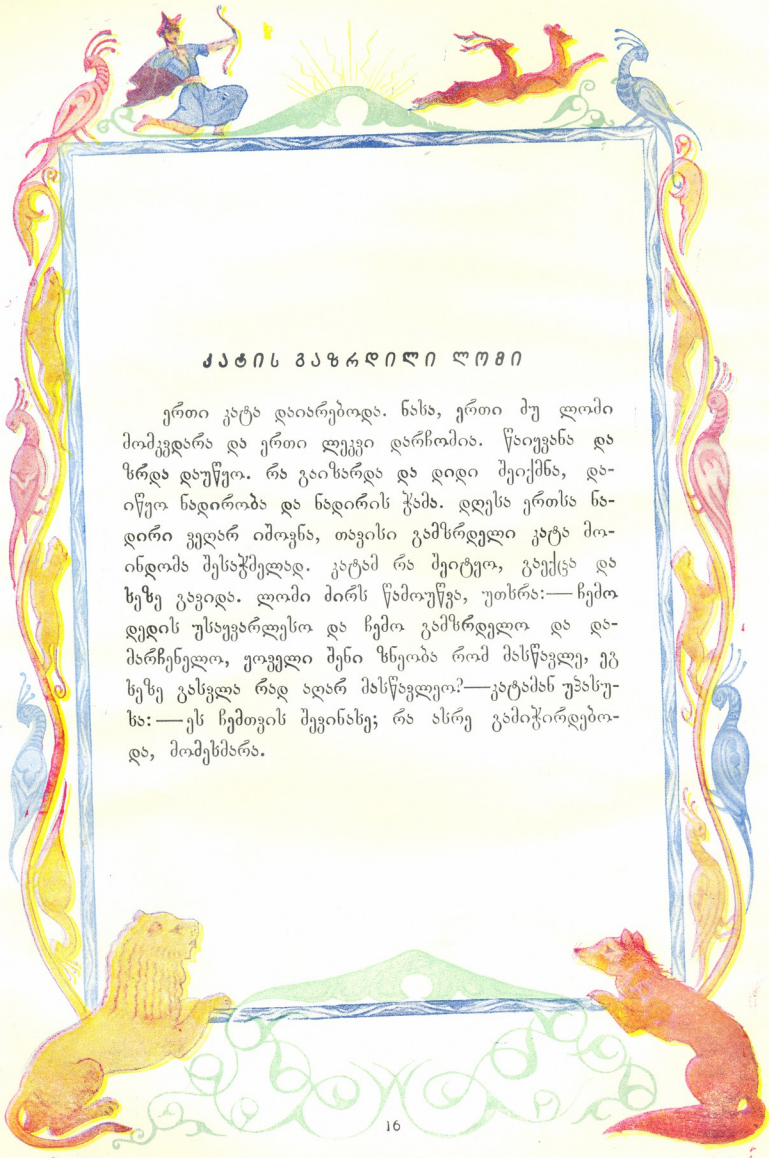 კატის გაზრდილი ლომი
ერთი კატა დაიარებოდა. ნახა, ერთი ძუ ლომი
მომკვდარა და ერთი ლეკვი დარჩომია. წაიყვანა და
ზრდა დაუწყო. რა გაიზარდა და დიდი შეიქმნა, და-
იწყო ნადირობა და ნადირის ჭამა. დღესა ერთსა ნა-
დირი ვეღარ იშოვნა, თავისი გამზრდელი კატა მო-
ინდომა შესაჭმელად. კატამ რა შეიტყო, გაექცა და
ხეზე გავიდა. ლომი ძირს წამოუწვა, უთხრა:—ჩემო
დედის უსაყვარლესო და ჩემო გამზრდელო და და-
მარჩენელო, ყოველი შენი ზნეობა რომ მასწავლე, ეგ
ხეზე გასვლა რად აღარ მასწავლეო?—კატამან უპასუ-
ხა:—ეს ჩემთვის შევინახე; რა ასრე გამიჭირდებო-
და, მომეხმარა.
16